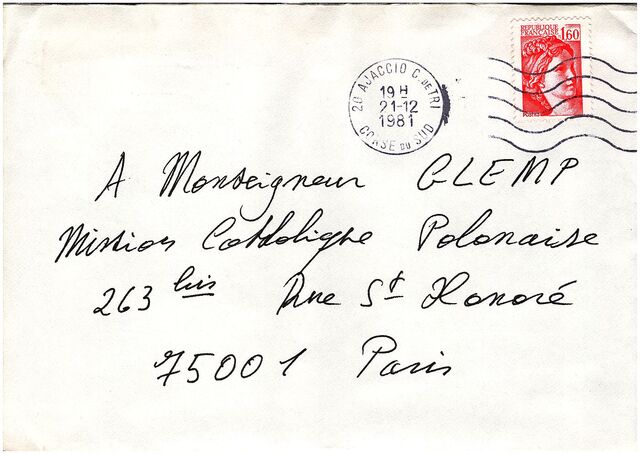 REPUBLIQUE FRANCAISE 1,60
20 AJACCIO C. DE TRI
19 H
21-12
1981
CORSE DU SUD
A Monseigneur GLEMP
Mission Catholique Polonaise
263 bis Rue St Honoré
75001 Paris